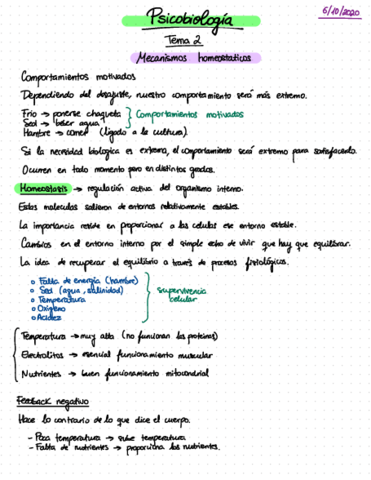 6/10/2020
Psicobiología
Tema 2
Mecanismos homeostáticos
Comportamientos motivados
Dependiendo del desajuste, nuestro comportamiento será más extremo.
Frío → ponerse chaqueta
Sed → beber agua
Hambre → comer (ligado a la cultura).
Comportamientos motivados
Si la necesidad biologica es extrema, el comportamiento será extremo para satisfacerla.
Ocurren en todo momento pero en distintos grados.
Homeostasis → regulación activa del organismo interno.
Estas moleculas salieron de entornos relativamente estables.
La importancia reside en proporcionar a las celulas ese entorno estable.
Cambios en el entorno interno por el simple echo de vivir que hay que equilibrar.
La idea de recuperar el equilibrio a través de procesos fisiológicos.
o Falta de energía (hambre)
o Sed (agua, salinidad)
o Temperatura
o Oxígeno
o Acidez
Supervivencia
celular
Temperatura → muy alta (no funcionan las proteínas)
Electrolitos → esencial funcionamiento muscular
Nutrientes → buen funcionamiento mitocondrial
Feedback negativo
Hace lo contrario de lo que dice el cuerpo.
- Poca temperatura → sube temperatura
- Falta de nutrientes → proporciona los nutrientes.